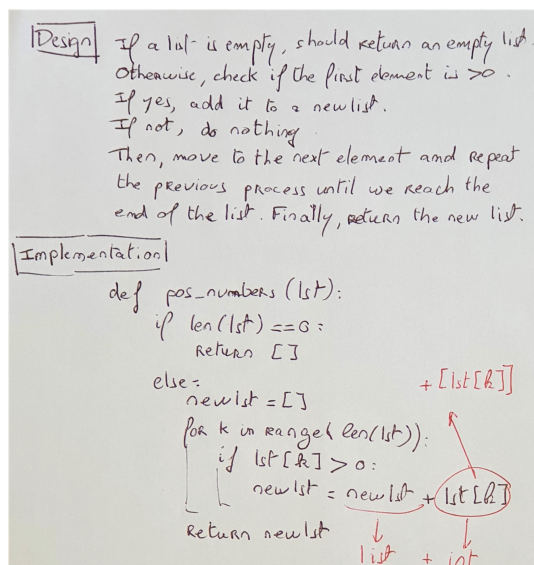 Design If a list is empty, should return an empty list.
Otherwise, check if the first element is >0.
If yes, add it to a new list.
If not, do nothing.
Then, move to the next element and repeat
the previous process until we reach the
end of the list. Finally, return the new list.
Implementation
def pos_numbers (lst):
if len(lst) == 0:
return []
else:
newlst = []
+ [lst[k]]
for k in range( len(lst)):
if lst[k] > 0:
newlst = newlst + lst[k]
return newlst
list + int